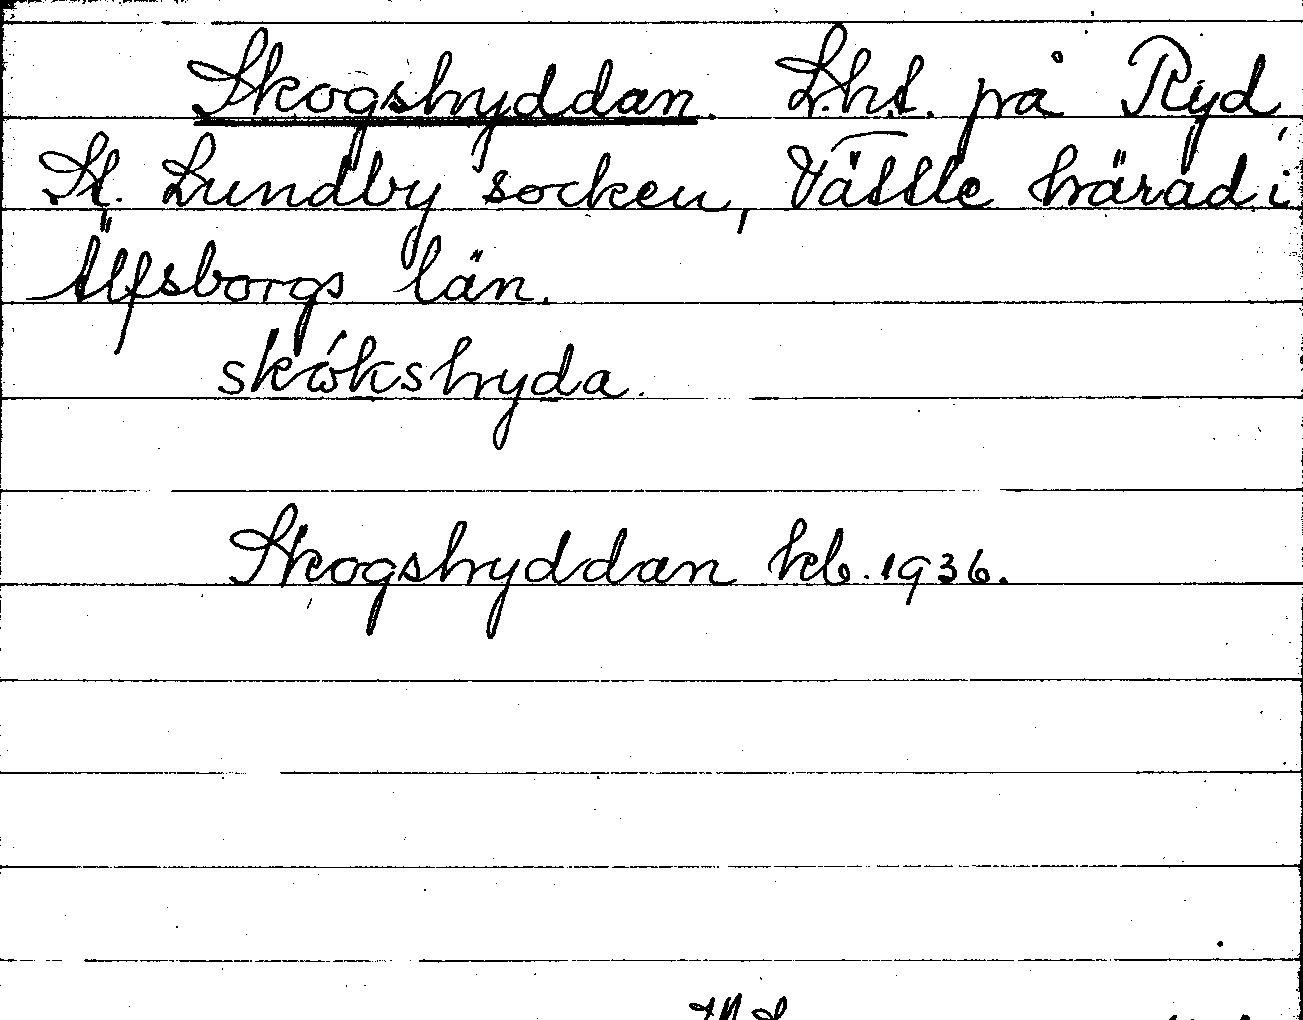 Skogshyddan. L.h.t. på Ryd,
St. Lundby socken, Vättle härad i
Älfsborgs län.
skókshyda.
Skogshyddan kb. 1936.